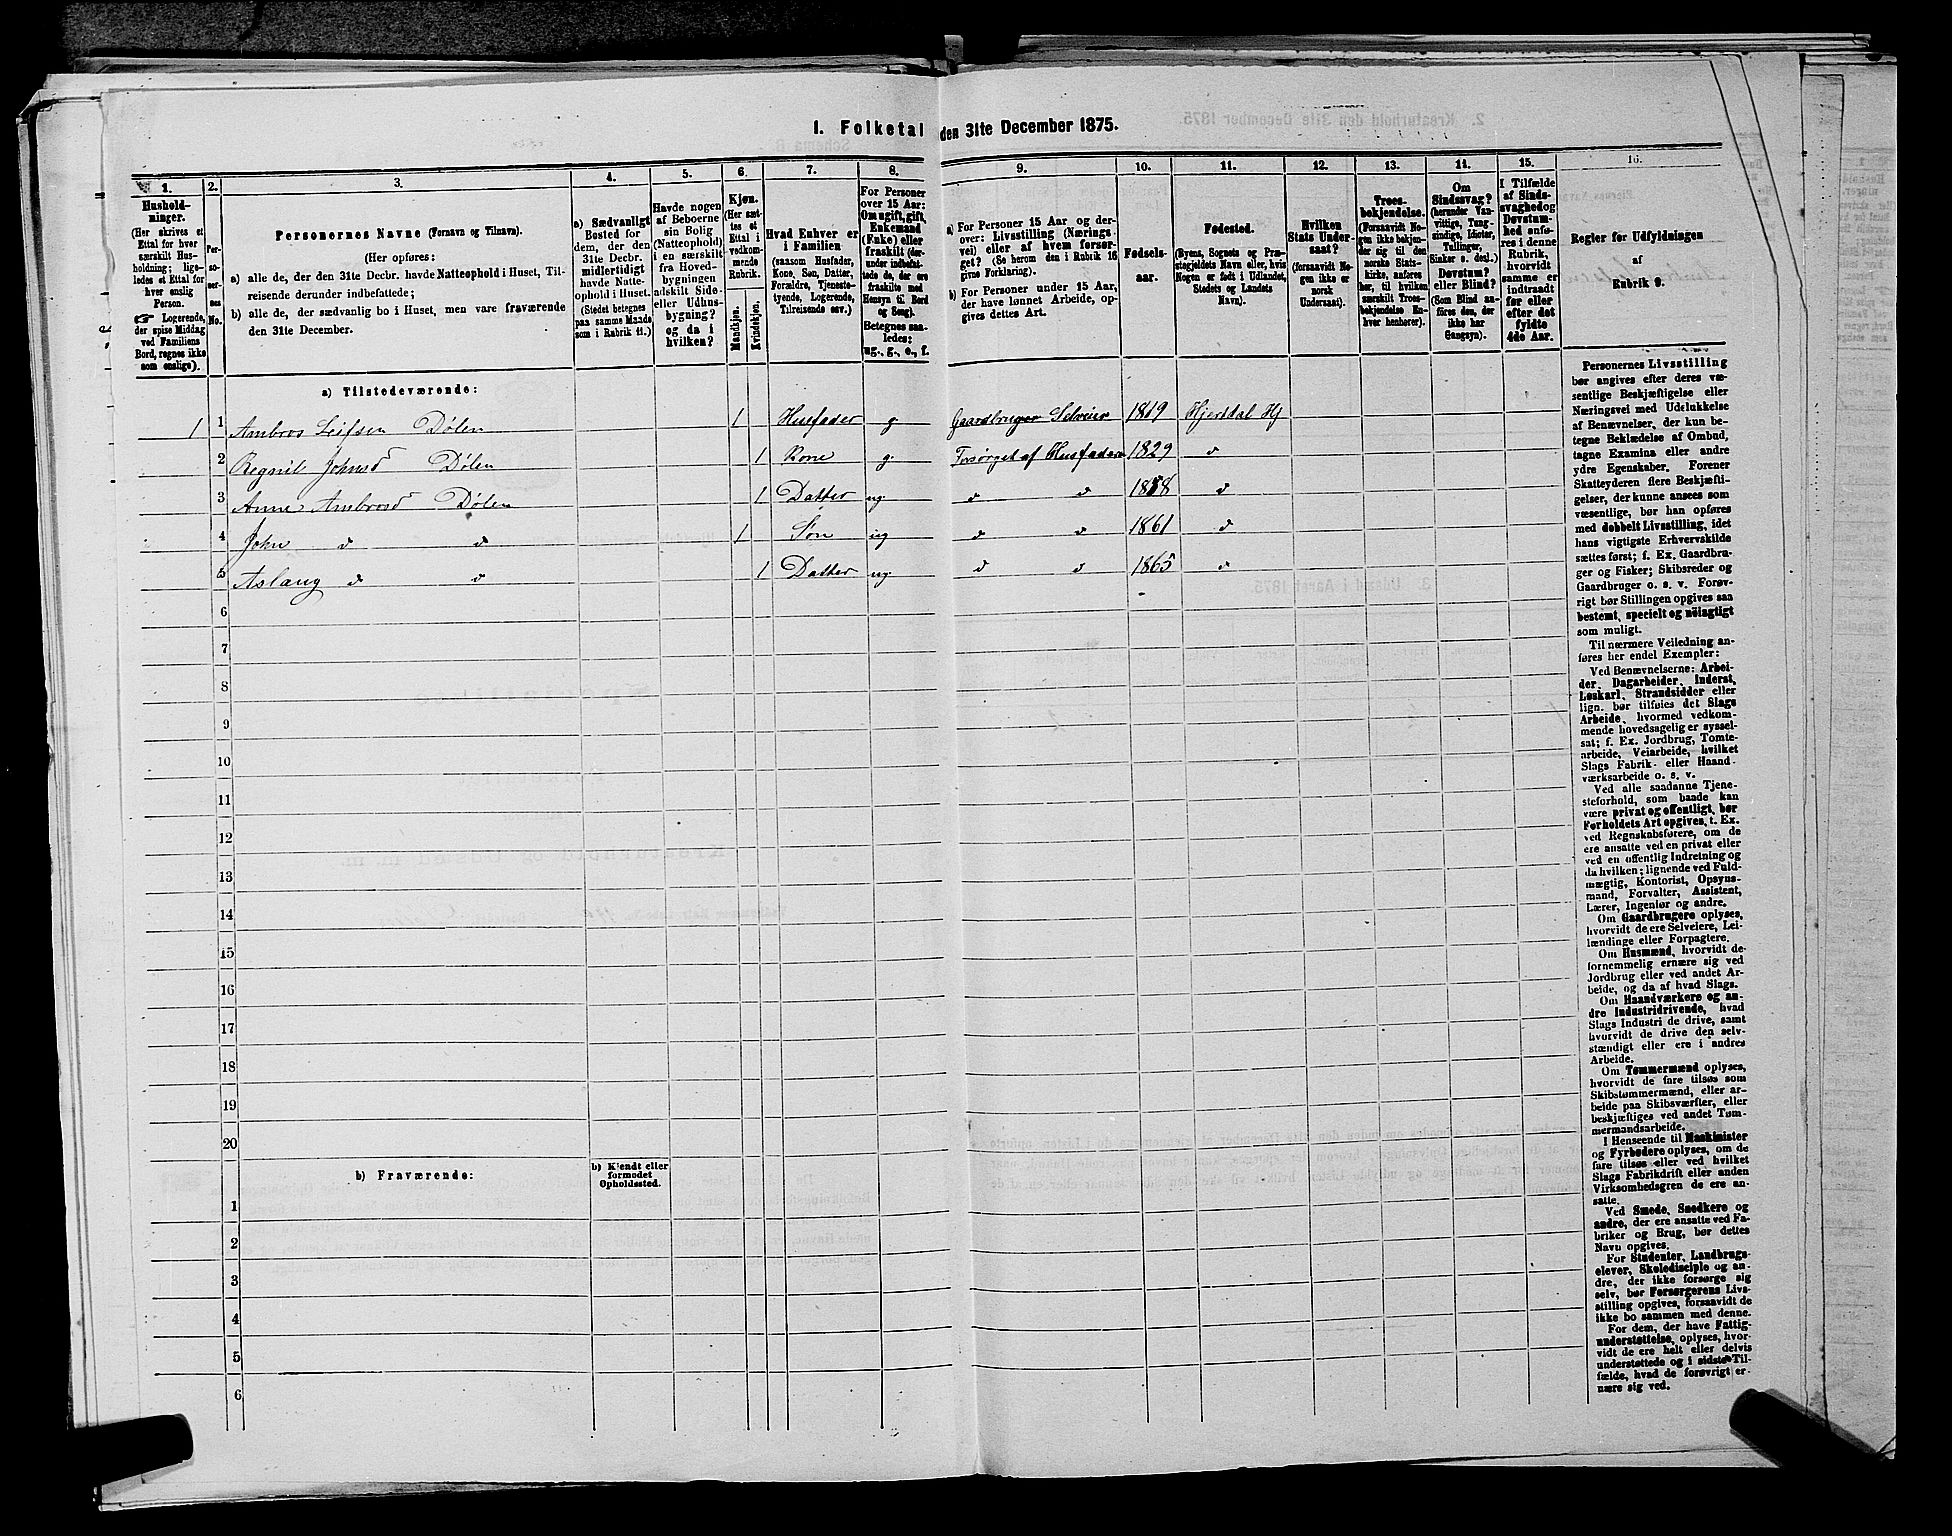 I. Folketal den 31te December 1875.
1. 2. 3. 4. 5. 6. 7. 8. 9. 10. 11. 12. 13. 14. 15. 16.
Hushold-
ninger.
(Her skrives et
Ettal for hver
særskilt Hus-
holdning; lige-
ledes et Ettal for
hver enslig
Person.
☞ Logerende,
der spise Middag
ved Familiens
Bord, regnes ikke
som enslige).
Per-
so-
ner-
nes
No.
Personernes Navne (Fornavn og Tilnavn).
(Her opføres:
a) alle de, der den 31te Decbr. havde Natteophold i Huset, Til-
reisende derunder indbefattede;
b) alle de, der sædvanlig bo i Huset, men vare fraværende
den 31te December.
a) Sædvanligt
Bosted for
dem, der den
31te Decbr.
midlertidigt
havde Natte-
ophold i Huset.
(Stedet betegnes
paa samme Maade
som i Rubrik 11.)
Havde nogen
af Beboerne
sin Bolig
(Natteophold)
i en særskilt
fra Hoved-
bygningen
adskilt Side-
eller Udhus-
bygning?
og da i
hvilken?
Kjøn.
(Her sæt-
tes et
Ettal i
vedkom-
mende
Rubrik.
Mandkjøn.
Kvindekjøn.
Hvad Enhver er
i Familien
(saasom Husfader,
Kone, Søn, Datter,
Forældre, Tjeneste-
tyende, Logerende,
Tilreisende osv.)
For Personer
over 15 Aar:
Om ugift, gift,
Enkemand
(Enke) eller
fraskilt (der-
under indbefat-
tede de, der ere
fraskilte med
Hensyn til Bord
og Seng).
Betegnes saa-
ledes:
ug., g., e., f.
a) For Personer 15 Aar og der-
over: Livsstilling (Nærings-
vei) eller af hvem forsør-
get? (Se herom den i Rubrik 16
givne Forklaring).
b) For Personer under 15 Aar,
der have lønnet Arbeide, op-
gives dettes Art.
Fødsels-
aar.
Fødested.
(Byens, Sognets og Præ-
stegjeldets Navn eller, hvis
Nogen er født i Udlandet,
Stedets og Landets
Navn).
Hvilken
Stats Under-
saat?
(forsaavidt No-
gen ikke er
norsk
Undersaat).
Troes-
bekjendelse.
(Forsaavidt No-
gen ikke bekjen-
der sig til den
norske Stats-
kirke, anføres
her, til hvilken
særskilt Troes-
bekjendelse En-
hver henhører).
Om
Sindssvag?
(herunder Van-
vittige, Tung-
sindige, Idioter,
Tullinger,
Sinker o. desl.)
Døvstum?
eller Blind?
(Som Blind an-
føres den, der
ikke har
Gangsyn).
I Tilfælde
af Sinds-
svaghed og
Døvstum-
hed anfø-
res i denne
Rubrik,
hvorvidt
samme er
indtraadt
før eller
efter det
fyldte
4de Aar.
Regler for Udfyldningen
af
Rubrik 9.
a) Tilstedeværende:
1 1 Ambros Leifsen Dølen 1 Husfader g. Gaardbruger Selveier 1819 Hjertdal Hj
2 Regnil Johnsd Dølen 1 Kone g. Forsørget af Husfaderen 1829 d
3 Anne Ambrosd Dølen 1 Datter ug d d 1858 d
4 John d d 1 Søn ug d d 1861 d
5 Aslaug d d 1 Datter ug. d d 1865 d
6
7
8
9
10
11
12
13
14
15
16
17
18
19
20
b) Fraværende:
b) Kjendt eller
formodet
Opholdssted.
1
2
3
4
5
6
Personernes Livsstilling
bør angives efter deres væ-
sentlige Beskjæftigelse eller
Næringsvei med Udelukkelse
af Benævnelser, der kun be-
tegne Beklædelse af Ombud,
tagne Examina eller andre
ydre Egenskaber. Forener
Skatteyderen flere Beskjæfti-
gelser, der kunne ansees som
væsentlige, bør han opføres
med dobbelt Livsstilling, idet
hans vigtigste Erhvervskilde
sættes først; f. Ex. Gaardbru-
ger og Fisker; Skibsreder og
Gaardbruger o. s. v. Forøv-
rigt bør Stillingen opgives saa
bestemt, specielt og nøiagtigt
som muligt.
Til nærmere Veiledning an-
føres her endel Exempler:
Ved Benævnelserne: Arbei-
der, Dagarbeider, Inderst,
Løskarl, Strandsidder eller
lign. bør tilføies det Slags
Arbeide, hvormed vedkom-
mende hovedsagelig er syssel-
sat; f. Ex. Jordbrug, Tomte-
arbeide, Veiarbeide, hvilket
Slags Fabrik- eller Haand-
værksarbeide o. s. v.
Ved alle saadanne Tjene-
steforhold, som baade kan
være privat og offentligt, bør
Forholdets Art opgives, t. Ex.
ved Regnskabsførere, om de
ere ansatte ved en privat eller
ved en offentlig Indretning og
da hvilken; lignende ved Fuld-
mægtig, Kontorist, Opsyns-
mand, Forvalter, Assistent,
Lærer, Ingeniør og andre.
Om Gaardbrugere oplyses,
hvorvidt de ere Selveiere, Lei-
lændinge eller Forpagtere.
Om Husmænd, hvorvidt de-
fornemmelig ernære sig ved
Jordbrug eller ved andet Ar-
beide, og da af hvad Slags.
Om Haandværkere og an-
dre Industridrivende, hvad
Slags Industri de drive, samt
hvorvidt de drive den selv-
stændigt eller ere i andres
Arbeide.
Om Tømmermænd oplyses,
hvorvidt de fare tilsøs som
Skibstømmermænd, eller ar-
beide paa Skibsværfter, eller
beskjæftiges ved andet Tøm-
mermandsarbeide.
I Henseende til Maskinister
og Fyrbødere oplyses, om de
fare tilsøs eller ved hvilket
Slags Fabrikdrift eller anden
Virksomhedsgren de ere an-
satte.
Ved Smede, Snedkere og
andre, der ere ansatte ved Fa-
briker og Brug, bør dettes
Navn opgives.
For Studenter, Landbrugs-
elever, Skoledisciple og an-
dre, der ikke forsørge sig
selv, bør Forsørgerens Livs-
stilling opgives, forsaavidt de
ikke bo sammen med denne.
For dem, der have Fattig-
understøttelse, oplyses, hvor-
vidt de ere helt eller delvis
understøttede og i sidste Til-
fælde, hvad de forøvrigt er-
nære sig ved.